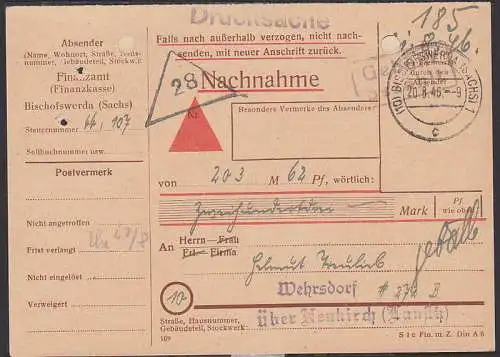 Drucksache
185
Absender
(Name, Wohnort, Straße, Zustell-
nummer, Gebäudeteil, Stockwerk)
Finanzamt
(Finanzkasse)
Bischofswerda (Sachs)
Steuernummer 44, 107
Sollbuchnummer usw.
Postvermerk
Nicht angetroffen
Frist verlangt
Nicht eingelöst
Verweigert
Falls nach außerhalb verzogen, nicht nach-
senden, mit neuer Anschrift zurück.
28
Nachnahme
Nr.
Besondere Vermerke des Absenders:
(10) BISCHOFSWERDA (SACHS) 1
20.8.46.-9
c
von 203 M 62 Pf, wörtlich:
Zweihundertdrei Mark Pf wie oben
An Herrn Frau
Frl. Firma
Helmut
Wehrsdorf # 272 B
10
über Neukirch (Lausitz)
Straße, Hausnummer,
Gebäudeteil, Stockwerk:
109
S 1 c Fin. m. Z. Din A 6